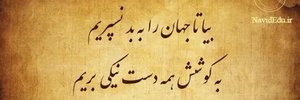 NavidEdu.ir
بیا تا جهان را به بد نسپریم
به کوشش همه دست نیکی بریم